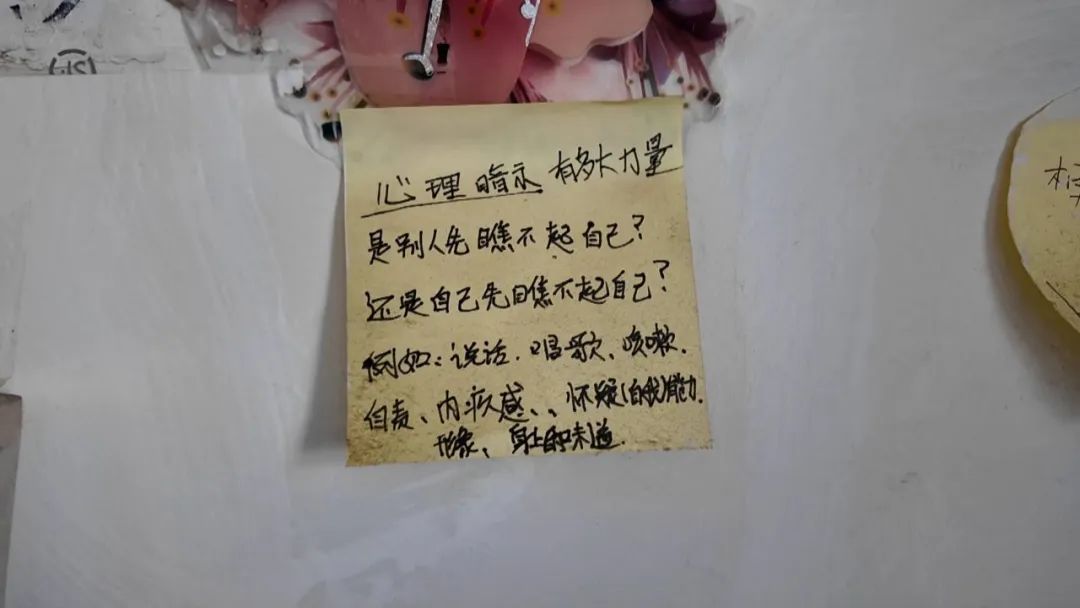 心理暗示有多大力量
是别人先瞧不起自己?
还是自己先瞧不起自己?
例如:说话.唱歌、咳嗽.
自责、内疚感、、怀疑(自我)能力.
形象、身上的味道.